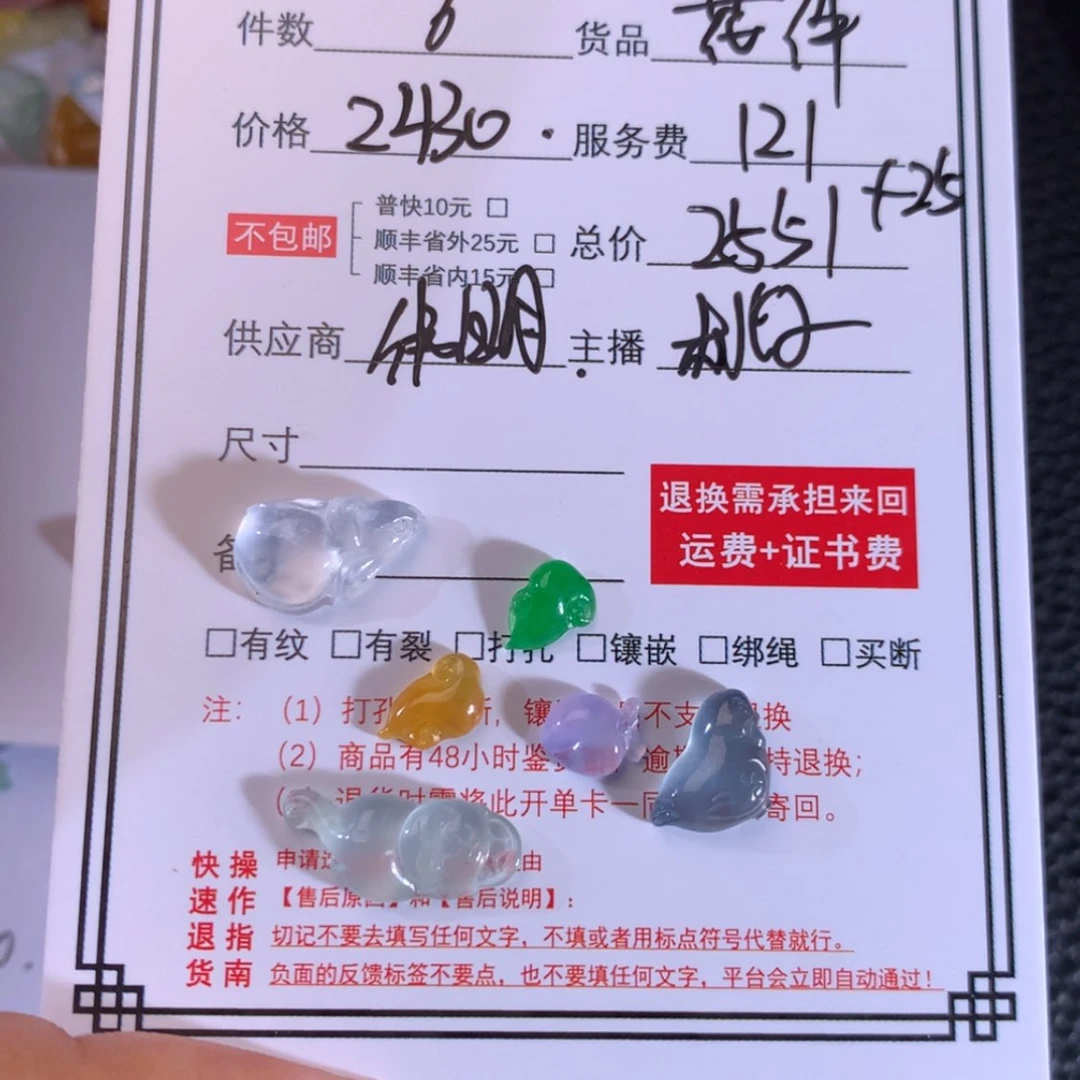 件数 6 货品
价格 2430 . 服务费 121
普快10元 □
不包邮 顺丰省外25元 □ 总价 2551 +25
顺丰省内15元 □
供应商 主播
尺寸
退换需承担来回
运费+证书费
□有纹 □有裂 □打孔 □镶嵌 □绑绳 □买断
注: (1) 打孔 镶 不支 退换
(2) 商品有48小时鉴 逾 持退换;
退货时需将此开单卡一同 寄回。
快操 申请 由
速作 【售后原因】和【售后说明】:
退指 切记不要去填写任何文字，不填或者用标点符号代替就行。
货南 负面的反馈标签不要点，也不要填任何文字，平台会立即自动通过！